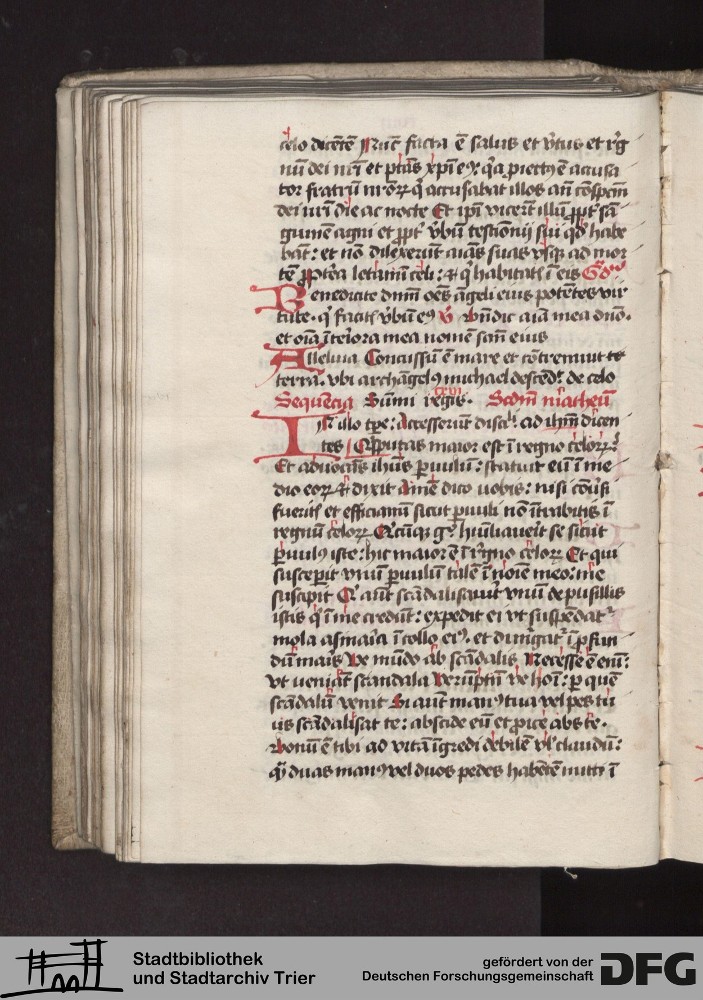 celo dicētē Nūc facta ē salus et v̓tus et r̓g
nū dei nr̄i et ptās xp̄i eꝰ q̓a piectꝰ ē accusa
tor fratrū nr̄oꝝ q̓ accusabat illos an̄ cōspcm̄
dei nr̄i die ac nocte Et ip̄i vicerūt illū ꝓpt̓ sā
guinē agni et ꝓpt̓ v̓bū testimonij sui qd̓ habe
bāt: et nō dilexerūt aīas suas vsq̓ ad mor
tē ꝓpt̓ea letamī celi: et q̓ habitatꝭ ī eis Gd̓
Benedicite dn̄m oēs āgeli eius potētes vir
tute. q̓ facitꝭ v̓bū eꝰ v̓ Bn̄dic aīa mea dn̄o.
et oīa īteriora mea nomē sc̄m eius
Alleluia Concussū ē mare et cōtremuit
terra. vbi archāgelꝰ michael descēd̓. de celo
Sequēcia Sūmi regis. Scdm̄ matheū
IN illo tpe: Accesserūt disclī ad ih̄m dicen
tes Q̓s putas maior est ī regno celoꝝ?
Et aduocās ih̄us paruulū: statuit eū ī me
dio eoꝝ et dixit Amē dico uobis: nisi cōu̓si
fueritꝭ et efficiamī sicut paruuli nō ītrabitis ī
regnū celoꝝ Q̓cūqꝫ g̓ hūiliauerit se sicut
paruulꝰ iste: hic maior ē ī r̓gno celoꝝ Et qui
susceperit vnū paruulū talē ī noīe meo: me
suscipit Q̓ aūt scādalisauerit vnū de pusillis
istis q̓ ī me credunt: expedit ei vt suspēdat᷑
mola asinaria ī collo eiꝰ. et dimgat᷑ ī ꝓfun
dū maris Ve mūdo ab scādalis Necesse ē enī:
vt veniāt scandala verūptn̄ ve hoī: per quē
scādalū venit Si aūt manꝰ tua vel pes tu
us scādalisat te: abscide eū et ꝓice abs te.
Bonū ē tibi ad vitā īgredi debilē vl̓ claudū:
q̄ duas manꝰ vel duos pedes habētē mitti ī
Stadtbibliothek
und Stadtarchiv Trier
gefördert von der
Deutschen Forschungsgemeinschaft
DFG